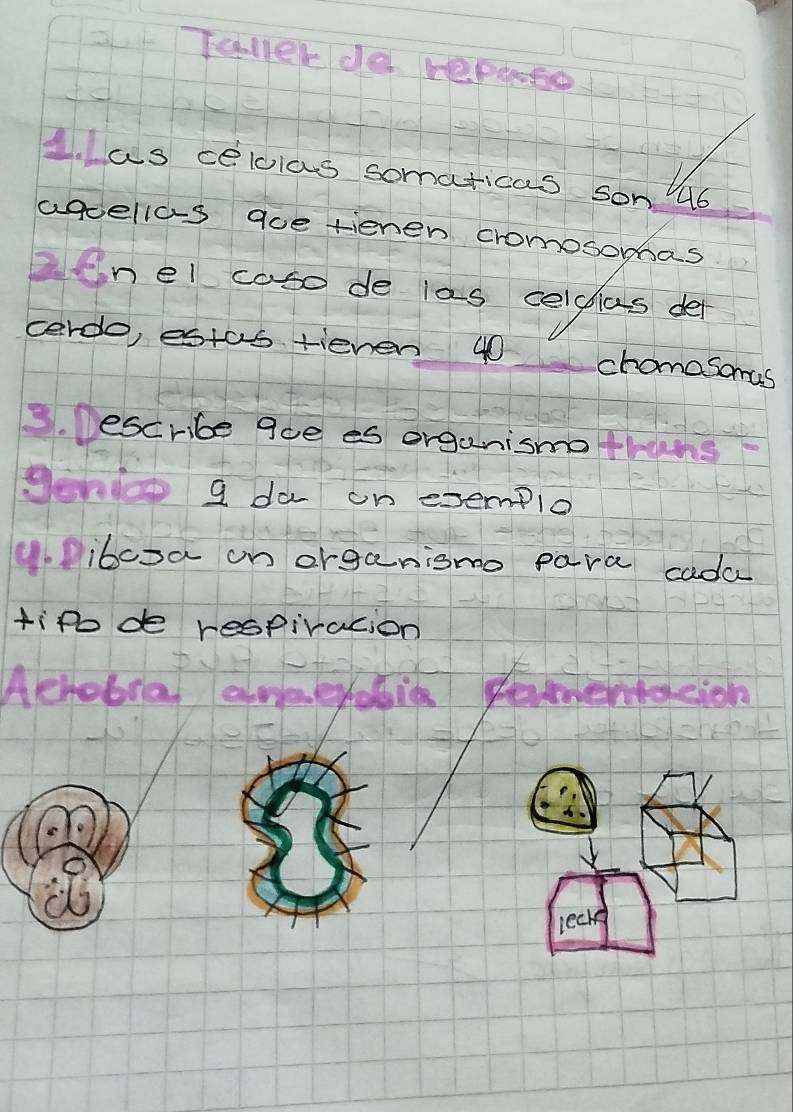 Taller de repaso
1. Las celulas somaticas son 46
aquellas que tienen cromosomas
2 En el caso de las celulas del
cerdo, estas tienen 40 chomosomas
3. Describe que es organismo trans-
genico y da un ejemplo
4. Dibuja un organismo para cada
tipo de respiracion
Aerobia anaerobia fermentacion
leche